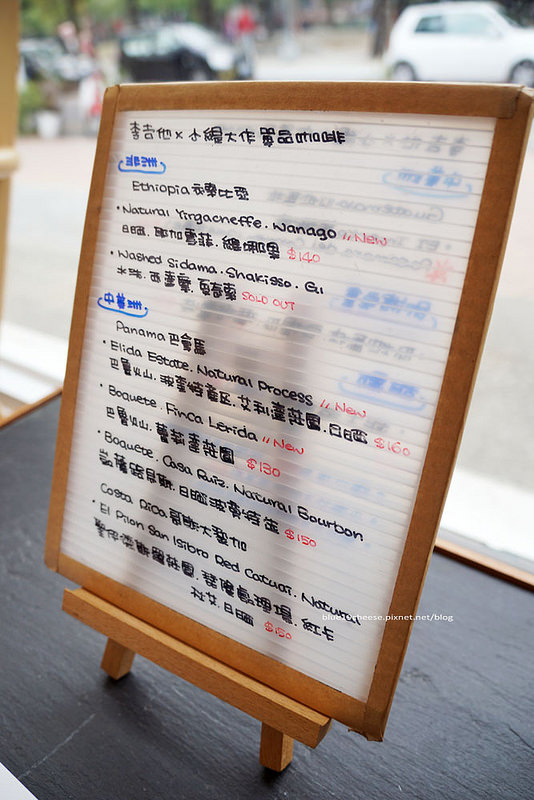 李吉他×小緹大作單品咖啡
非洲
Ethiopia 衣索比亞
•Natural Yirgacheffe. Wanago //New
日曬.耶加雪菲.娜哪果 $140
•Washed Sidama. Shakisso. G1
水洗.西達摩.夏奇索 SOLD OUT
中美洲
Panama 巴拿馬
•Elida Estate. Natural Process //New
巴魯火山.波奎特產區.艾利達莊園.日曬 $160
•Boquete. Finca Lerida //New
巴魯火山.蕾莉達莊園 $130
•Boquete. Casa Ruiz. Natural Bourbon
凱薩路易斯.日曬波奎特 $150
Costa Rica 哥斯大黎加
•El Pilon San Isibro Red Catuai. Natural
聖伊 莊園. 處理場.紅卡
杜艾.日曬 $150
blue10cheese.pixnet.net/blog